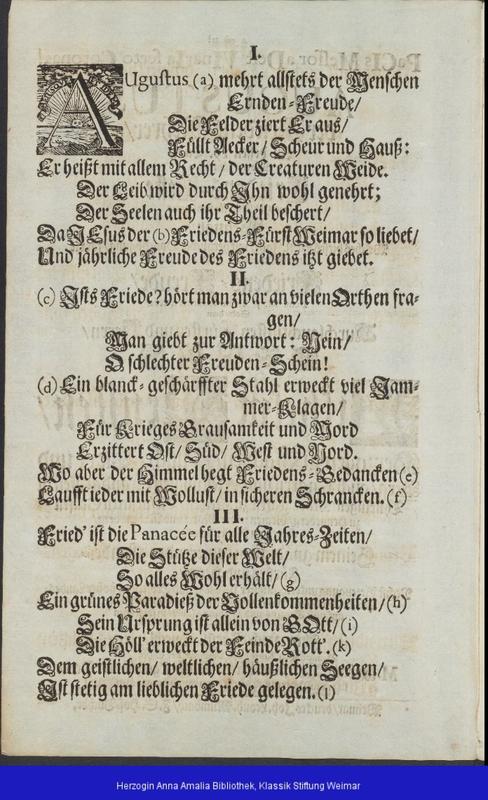 I.
AUgustus (a) mehrt allstets der Menschen
Ernden-Freude/
Die Felder ziert Er aus/
Füllt Aecker/ Scheur und Hauß:
Er heißt mit allem Recht/ der Creaturen Weide.
Der Leib wird durch Ihn wohl genehrt;
Der Seelen auch ihr Theil beschert/
Da JEsus der (b) Friedens-Fürst Weimar so liebet/
Und jährliche Freude des Friedens itzt giebet.
II.
(c) Ists Friede? hört man zwar an vielen Orthen fra-
gen/
Man giebt zur Antwort: Nein/
O schlechter Freuden-Schein!
(d) Ein blanck-geschärffter Stahl erweckt viel Jam-
mer-Klagen/
Für Krieges Grausamkeit und Mord
Erzittert Ost/ Süd/ West und Nord.
Wo aber der Himmel hegt Friedens-Gedancken (e)
Laufft ieder mit Wollust/ in sicheren Schrancken. (f)
III.
Fried' ist die Panacée für alle Jahres-Zeiten/
Die Stütze dieser Welt/
So alles Wohl erhält/ (g)
Ein grünes Paradieß der Vollenkommenheiten/ (h)
Sein Ursprung ist allein von GOtt/ (i)
Die Höll' erweckt der Feinde Rott'. (k)
Dem geistlichen/ weltlichen/ häußlichen Seegen/
Ist stetig am lieblichen Friede gelegen. (l)
Herzogin Anna Amalia Bibliothek, Klassik Stiftung Weimar